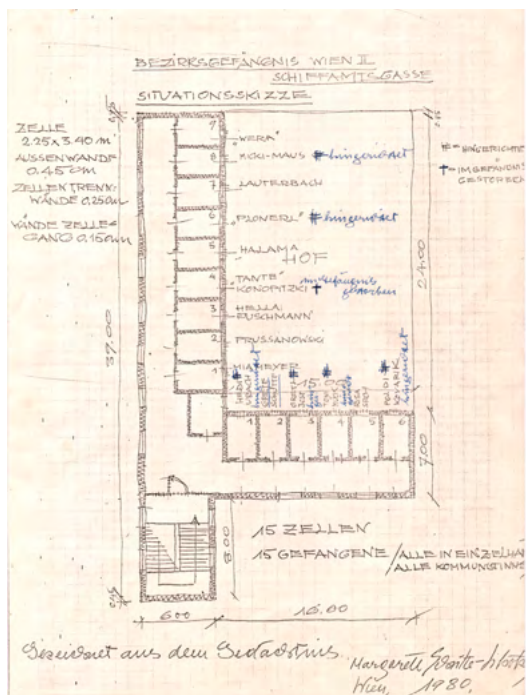 BEZIRKSGEFÄNGNIS WIEN II
SCHIFFAMTSGASSE
SITUATIONSSKIZZE
ZELLE
2.25x3.40 m
AUSSENWÄNDE
0.45cm
ZELLENTRENN-
WÄNDE 0.250m
WÄNDE ZELLE-
GANG 0.150m
# = HINGERICHTE
† = IM GEFÄNGNIS
GESTORBEN
9 "WERA"
8 MICKI-MAUS # hingerichtet
7 LAUTERBACH
6 "PLONERL" # hingerichtet
5 HALAMA
HOF
4 "TANTE"
KONOPITZKI † im Gefängnis
gestorben
3 HELLA
PUSCHMANN
2 PRUSSANOWSKI
1
15.00
POLDI
KOVARIK
hingerichtet
1 2 3 4 5 6
37.00
24.00
7.00
8.00
6.00
16.00
15 ZELLEN
15 GEFANGENE / ALLE IN EINZELHA
ALLE KOMMUNISTINNE
Gezeichnet aus dem Gedächtnis
Margarete Schütte-Lihotzky
Wien, 1980.